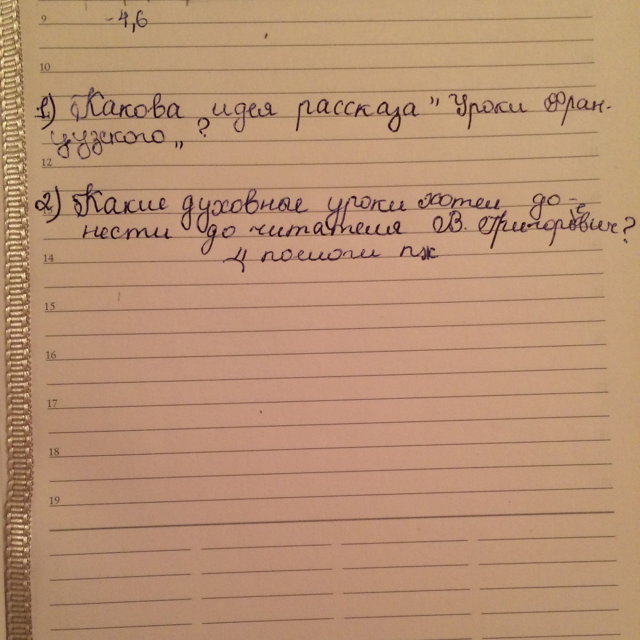 9 -4,6
10
1) Какова идея рассказа "Уроки Фран-
цузского„ ?
12
2) Какие духовные уроки хотел до-
нести до читателя В. Григоревич?
14 помоги пж
15
16
17
18
19